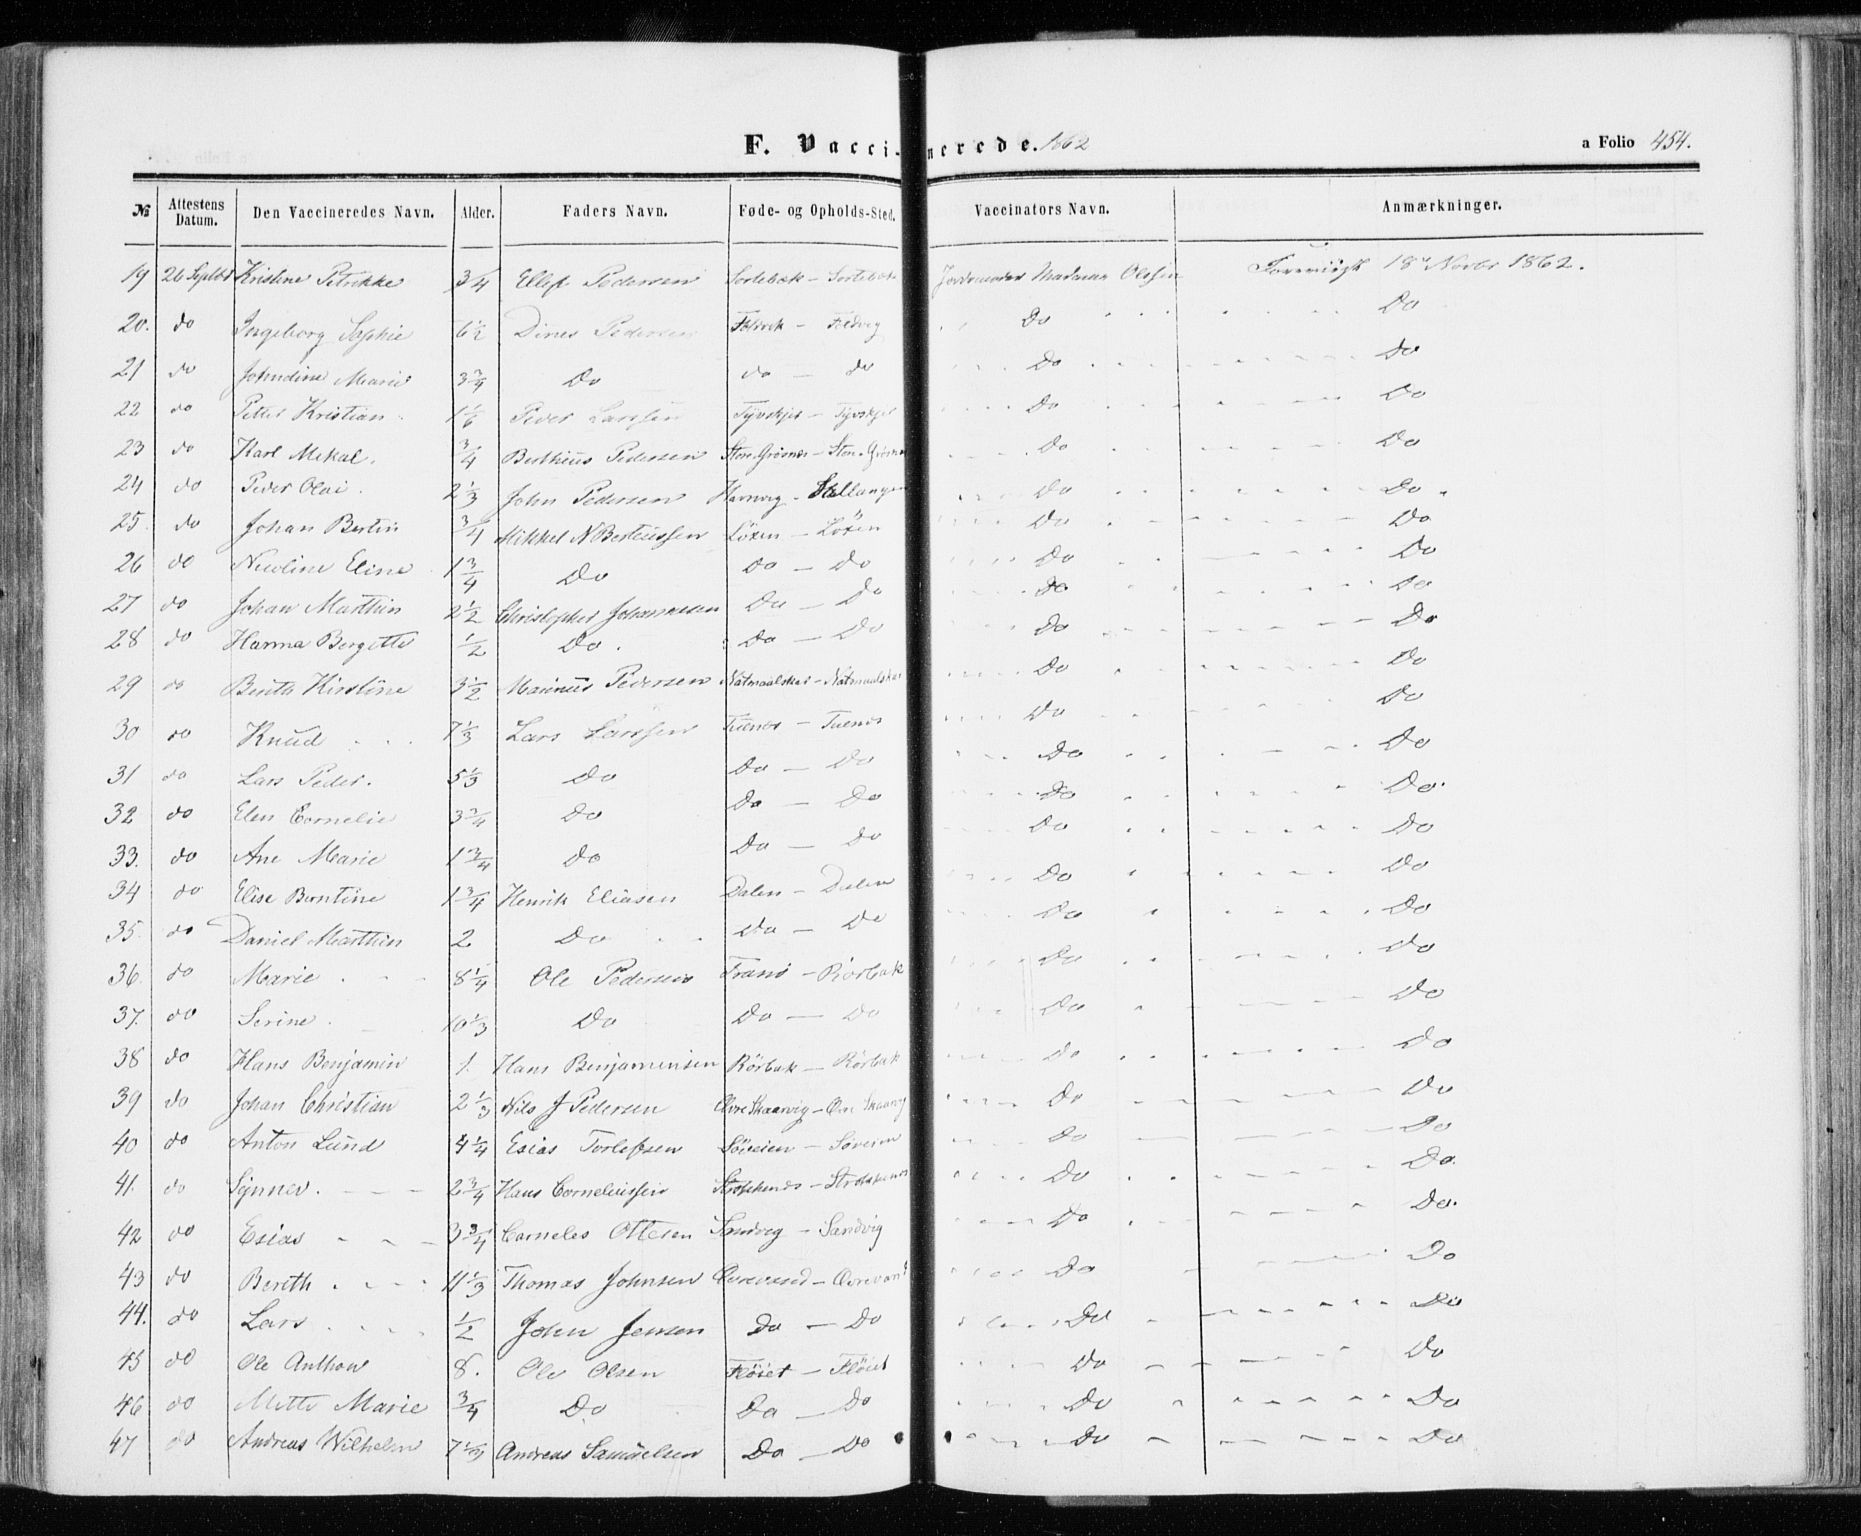 F. Vaccinerede. 1862
a Folio 454.
№ Attestens Datum. Den Vaccineredes Navn. Alder. Faders Navn. Føde- og Opholds-Sted. Vaccinators Navn. Anmærkninger.
19 26 Septbr Kristine Petrikke 3/4 Ellef Pedersen Sortebæk - Sortebæk Jordemoder Madame Olsen Foreviist 18de Novbr 1862.
20. do Ingeborg Sophie 6 1/2 Dines Pedersen Foldvik - Foldvig Do Do
21 do Johndine Marie 3 3/4 Do do - do Do Do
22 do Petter Kristian 1 1/6 Peder Larssen Tyvskjer - Tyvskjer Do Do
23 do Karl Mekal. 3/4 Berthius Pedersen Sten. Grovnes - Sten. Do Do
24 do Peder Olai. 2 1/3 John Pedersen Havnvig - Stallangen Do Do
25. do Johan Bertin 3/4 Mikkel N Berteussen Löxen - Löxen Do Do
26 do Nicoline Eline 1 3/4 Do do - do Do Do
27 do Johan Marthin 2 1/2 Christopher Johannesen Do - Do Do Do
28 do Hanna Bergitte 1/2 Do. Do - Do Do Do
29 do Berith Kirstine 3 1/2 Marinus Pedersen Natmaalskar - Natmaalskar Do Do
30 do Knud 7 1/3 Lars Larssen Tuenes - Tuenes Do Do
31 do Lars Peder. 5 1/3 Do Do - Do Do Do
32 do Elen Cornelie 3 3/4 Do Do - Do Do Do
33. do Ane Marie 1 3/4 Do Do - do Do Do
34 do Elise Berntine 1 3/4 Henrik Eliasen Dalen - Dalen Do Do
35. do Daniel Marthin 2 Do Do - Do Do Do
36 do Marie 8 1/4 Ole Pedersen Tranö - Rörbak Do Do
37. do Serine 10 1/3 Do Do - Do Do Do
38 do Hans Benjamin 1. Hans Benjaminsen Rörbak - Rörbak Do Do
39 do Johan Christian 2 1/3 Nils J Pedersen Övre Skaarvig - Övre Skaarvig Do Do
40 do Anton Lund 4 1/4 Esias Torlefsen Söveien - Söveien Do Do
41. do Synnev. 2 3/4 Hans Corneliussen Strokkenes - Strokkenes Do Do
42 do Esias 3 3/4 Corneles Ottesen Sandvig - Sandvig Do Do
43 do Bereth 11 1/3 Thomas Johnsen Övrevand - Övrevand Do Do
44. do Lars 1/2 John Jensen Do - Do Do Do
45 do Ole Anthon 8. Ole Olsen Flöiet - Flöiet Do Do
46 do Mette Marie 3/4 Do Do - Do Do Do
47 do Andreas Wilhelm 7 1/3 Andreas Samuelsen Do - Do Do Do